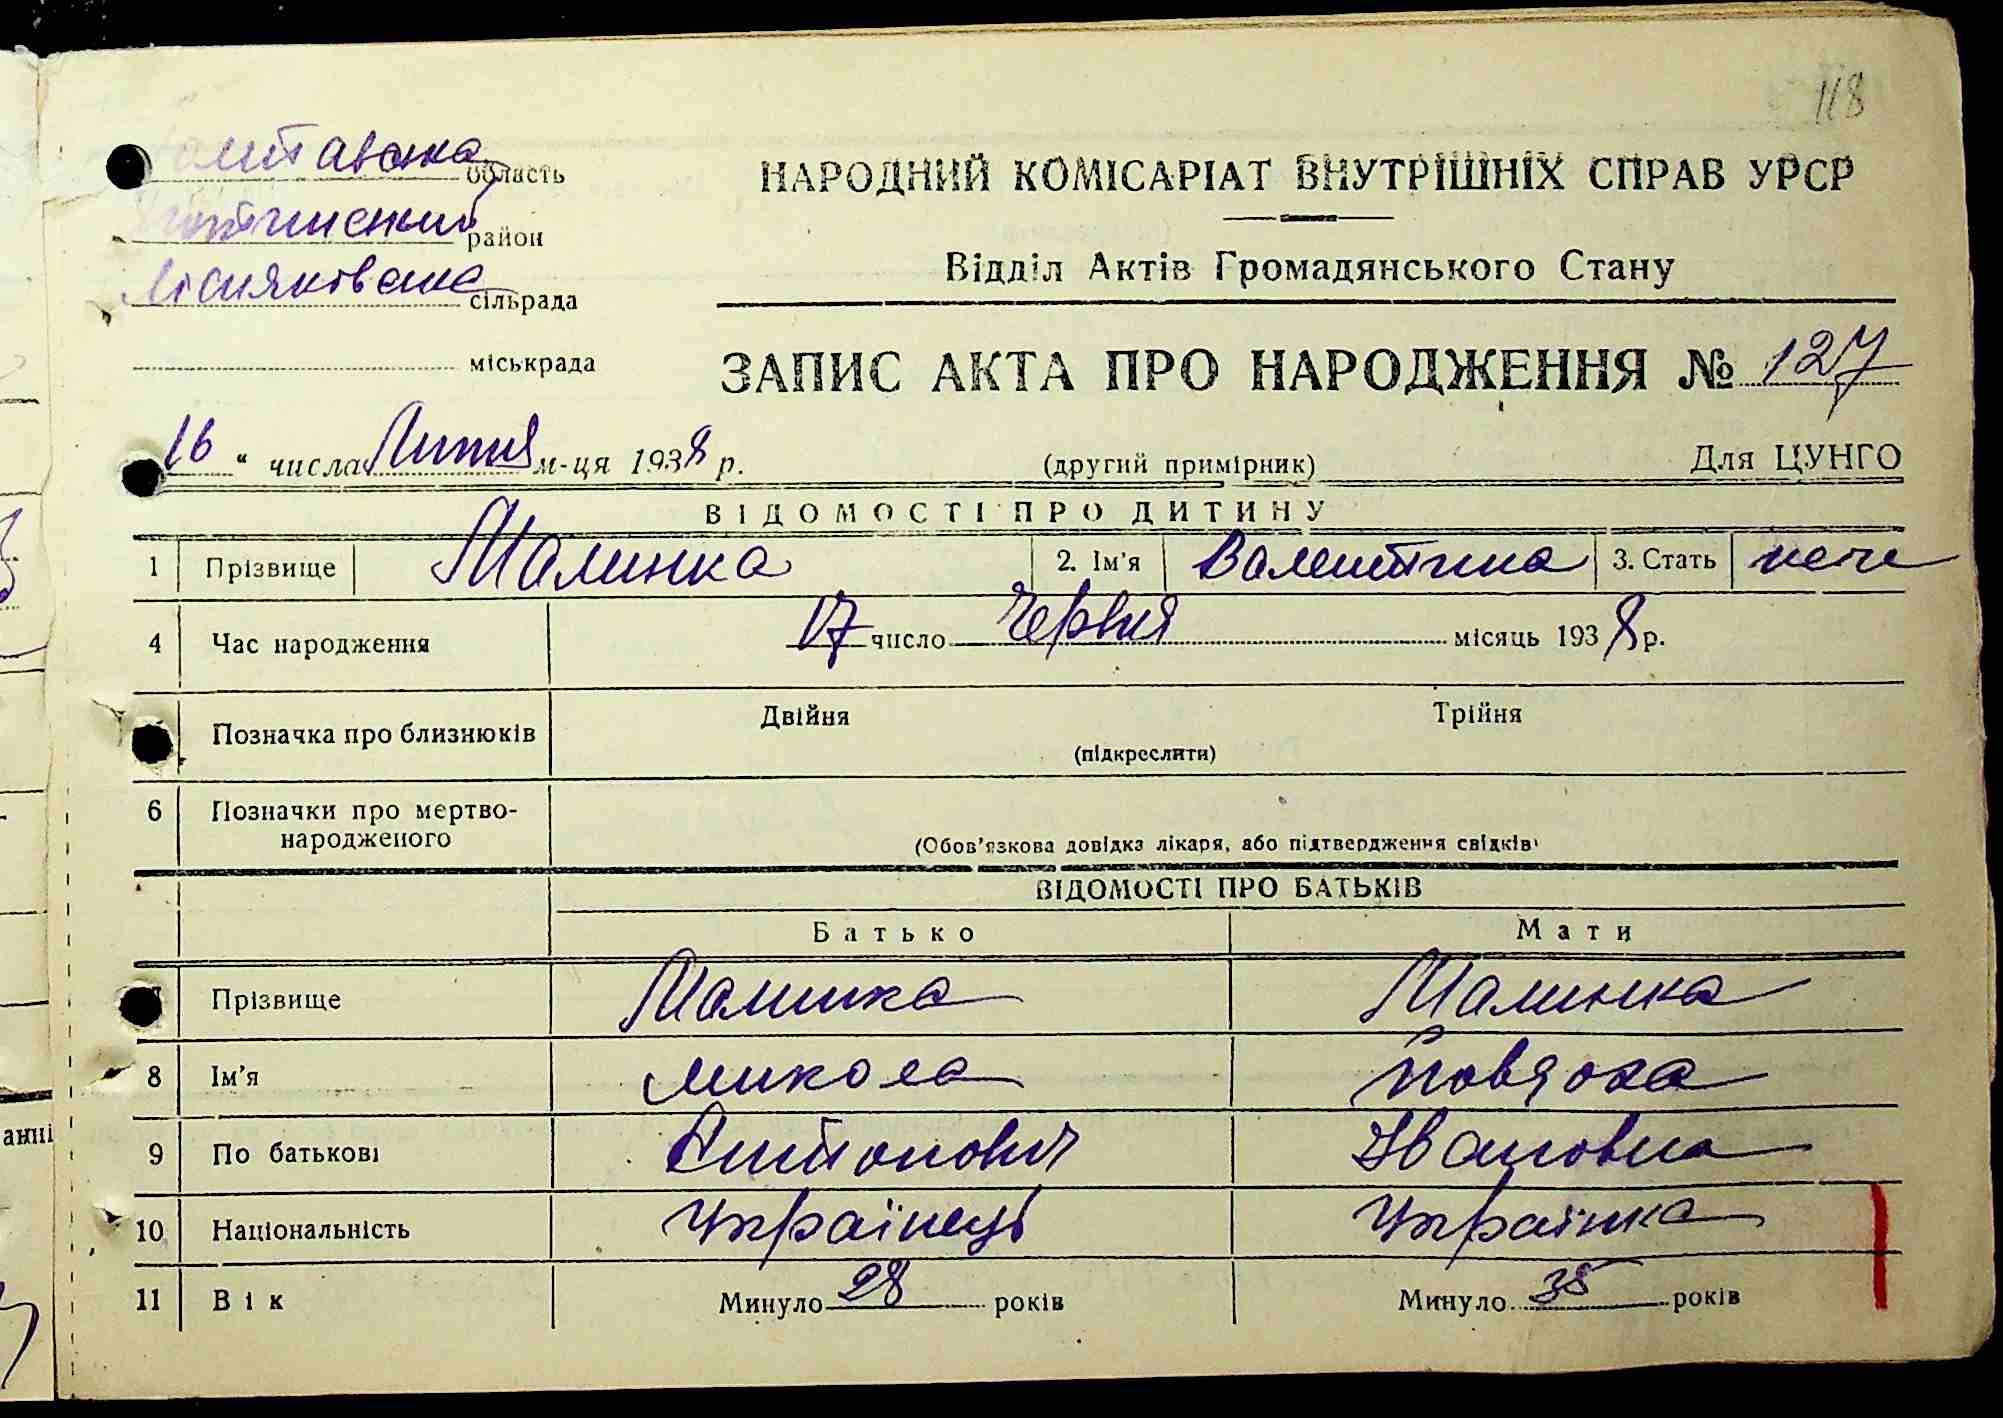 118
Полтавська область
район
сільрада
міськрада
НАРОДНИЙ КОМІСАРІАТ ВНУТРІШНІХ СПРАВ УРСР
Відділ Актів Громадянського Стану
ЗАПИС АКТА ПРО НАРОДЖЕННЯ № 127
16 " числа Липня м-ця 1938 р.
(другий примірник)
Для ЦУНГО
ВІДОМОСТІ ПРО ДИТИНУ
1 Прізвище Малинка 2. Ім'я Валентина 3. Стать
4 Час народження 17 число Червня місяць 1938 р.
Позначка про близнюків Двійня Трійня
(підкреслити)
6 Позначки про мертво-
народженого
(Обов'язкова довідка лікаря, або підтвердження свідків)
ВІДОМОСТІ ПРО БАТЬКІВ
Батько Мати
Прізвище Малинка Малинка
8 Ім'я Микола
9 По батькові Антонович Івановна
10 Національність Українець Українка
11 Вік Минуло 28 років Минуло 35 років
анні